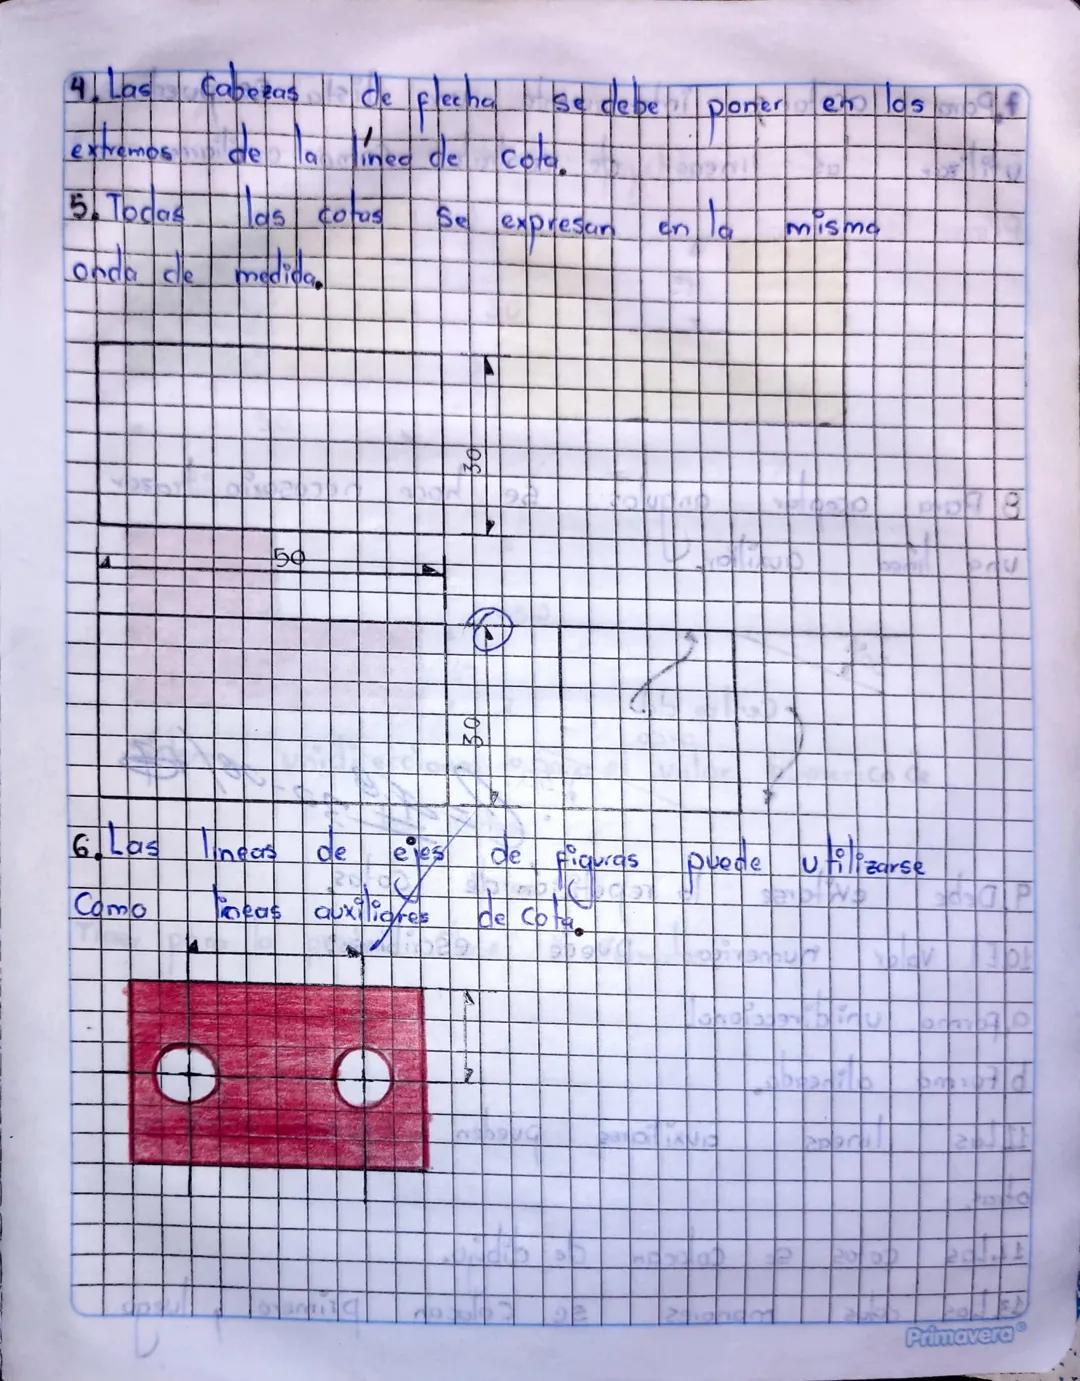 4. Las Cabezas de flecha se debe poner en los
extremos de la línea de cota.
5. Todas las cotas se expresan en la misma
onda de medida.
30
50
30
6. Las lineas de ejes de figuras puede utilizarse
Como lineas auxiliares de cota.
Primavera